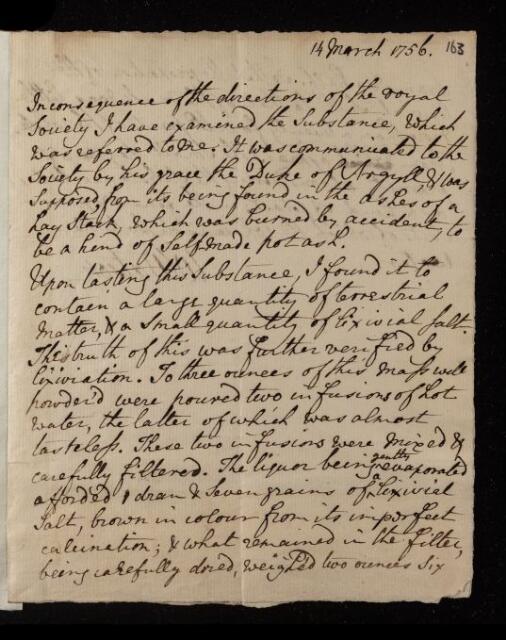 14 March 1756. 163
In consequence of the directions of the royal
Society I have examined the Substance, which
was referred to me. It was communicated to the
Society by his grace the Duke of Argyll, & was
Supposed from its being found in the ashes of a
hay Stack, which was burned by accident, to
be a kind of Selfmade pot ash.
Upon tasting this Substance, I found it to
contain a large quantity of terrestrial
matter, & a Small quantity of lixivial Salt.
The truth of this was further verified by
lixiviation. To three ounces of this mass well
powder'd were poured two infusions of hot
water, the latter of which was almost
tasteless. These two infusions were mixed &
carefully filtered. The liquor being gently evaporated
afforded 1 dram & Seven grains of a lixivial
Salt, brown in colour from its imperfect
calcination; & what remained in the filter,
being carefully dried, weigh'd two ounces Six